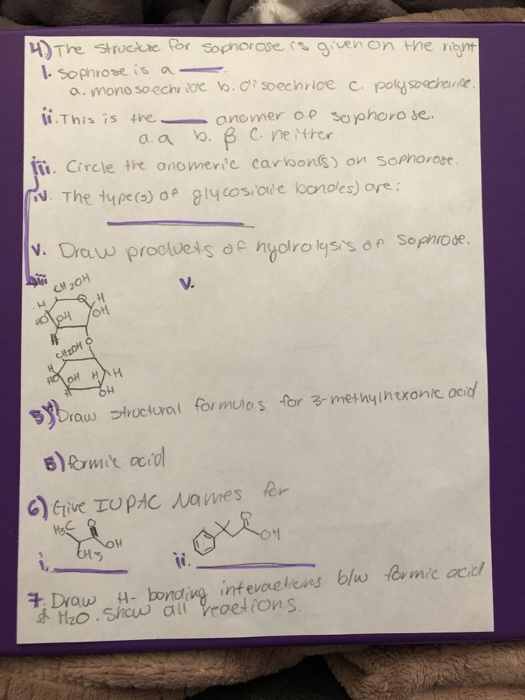 4) The structure for sophorose is given on the right
i. Sophrose is a ____.
a. monosaechride b. disaechride c. polysaccharide.
ii. This is the ____ anomer of sophorose.
a. a b. β c. neither
iii. Circle the anomeric carbon(s) on sophorose.
iv. The type(s) of glycosidic bond(es) are:
v. Draw products of hydrolysis of sophrose.
iii
v.
CH2OH
H
O
H
HO
OH
OH
H
O
CH2OH
H
HO
OH
H
H
H
OH
5) Draw structural formulas for 3-methylhexonic acid
B) formic acid
6) Give IUPAC Names for
H3C
O
OH
CH3
O
OH
i. ____
ii. ____
7. Draw H-bonding interactions b/w formic acid
& H2O. Show all reactions.